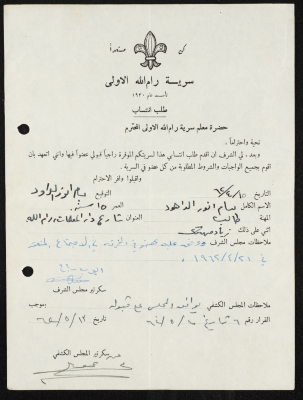 كن مستعداً
سرية رام الله الاولى
تأسست عام ١٩٣٠
طلب انتساب
حضرة معلم سرية رام الله الاولى المحترم
تحية واحتراماً ،
وبعد ، لي الشرف ان اقدم طلب انتسابي هذا لسريتكم الموقرة راجياً قبولي عضواً فيها واني اتعهد بان
اقوم بجميع الواجبات والشروط المطلوبة من كل عضو في السرية .
واقبلوا وافر الاحترام
التاريخ التوقيع بسام انور الداهود
الاسم الكامل بسام انور الداهود العمر ١٥ سنة
المهنة طالب العنوان شارع دار المعلمات رام الله
اثنى على ذلك
ملاحظات مجلس الشرف
في ١٩٦٢/٢/٢١
سكرتير مجلس الشرف
ملاحظات المجلس الكشفي يوافق المجلس على قبوله
القرار رقم ٦ تاريخ بموجب
سكرتير المجلس الكشفي